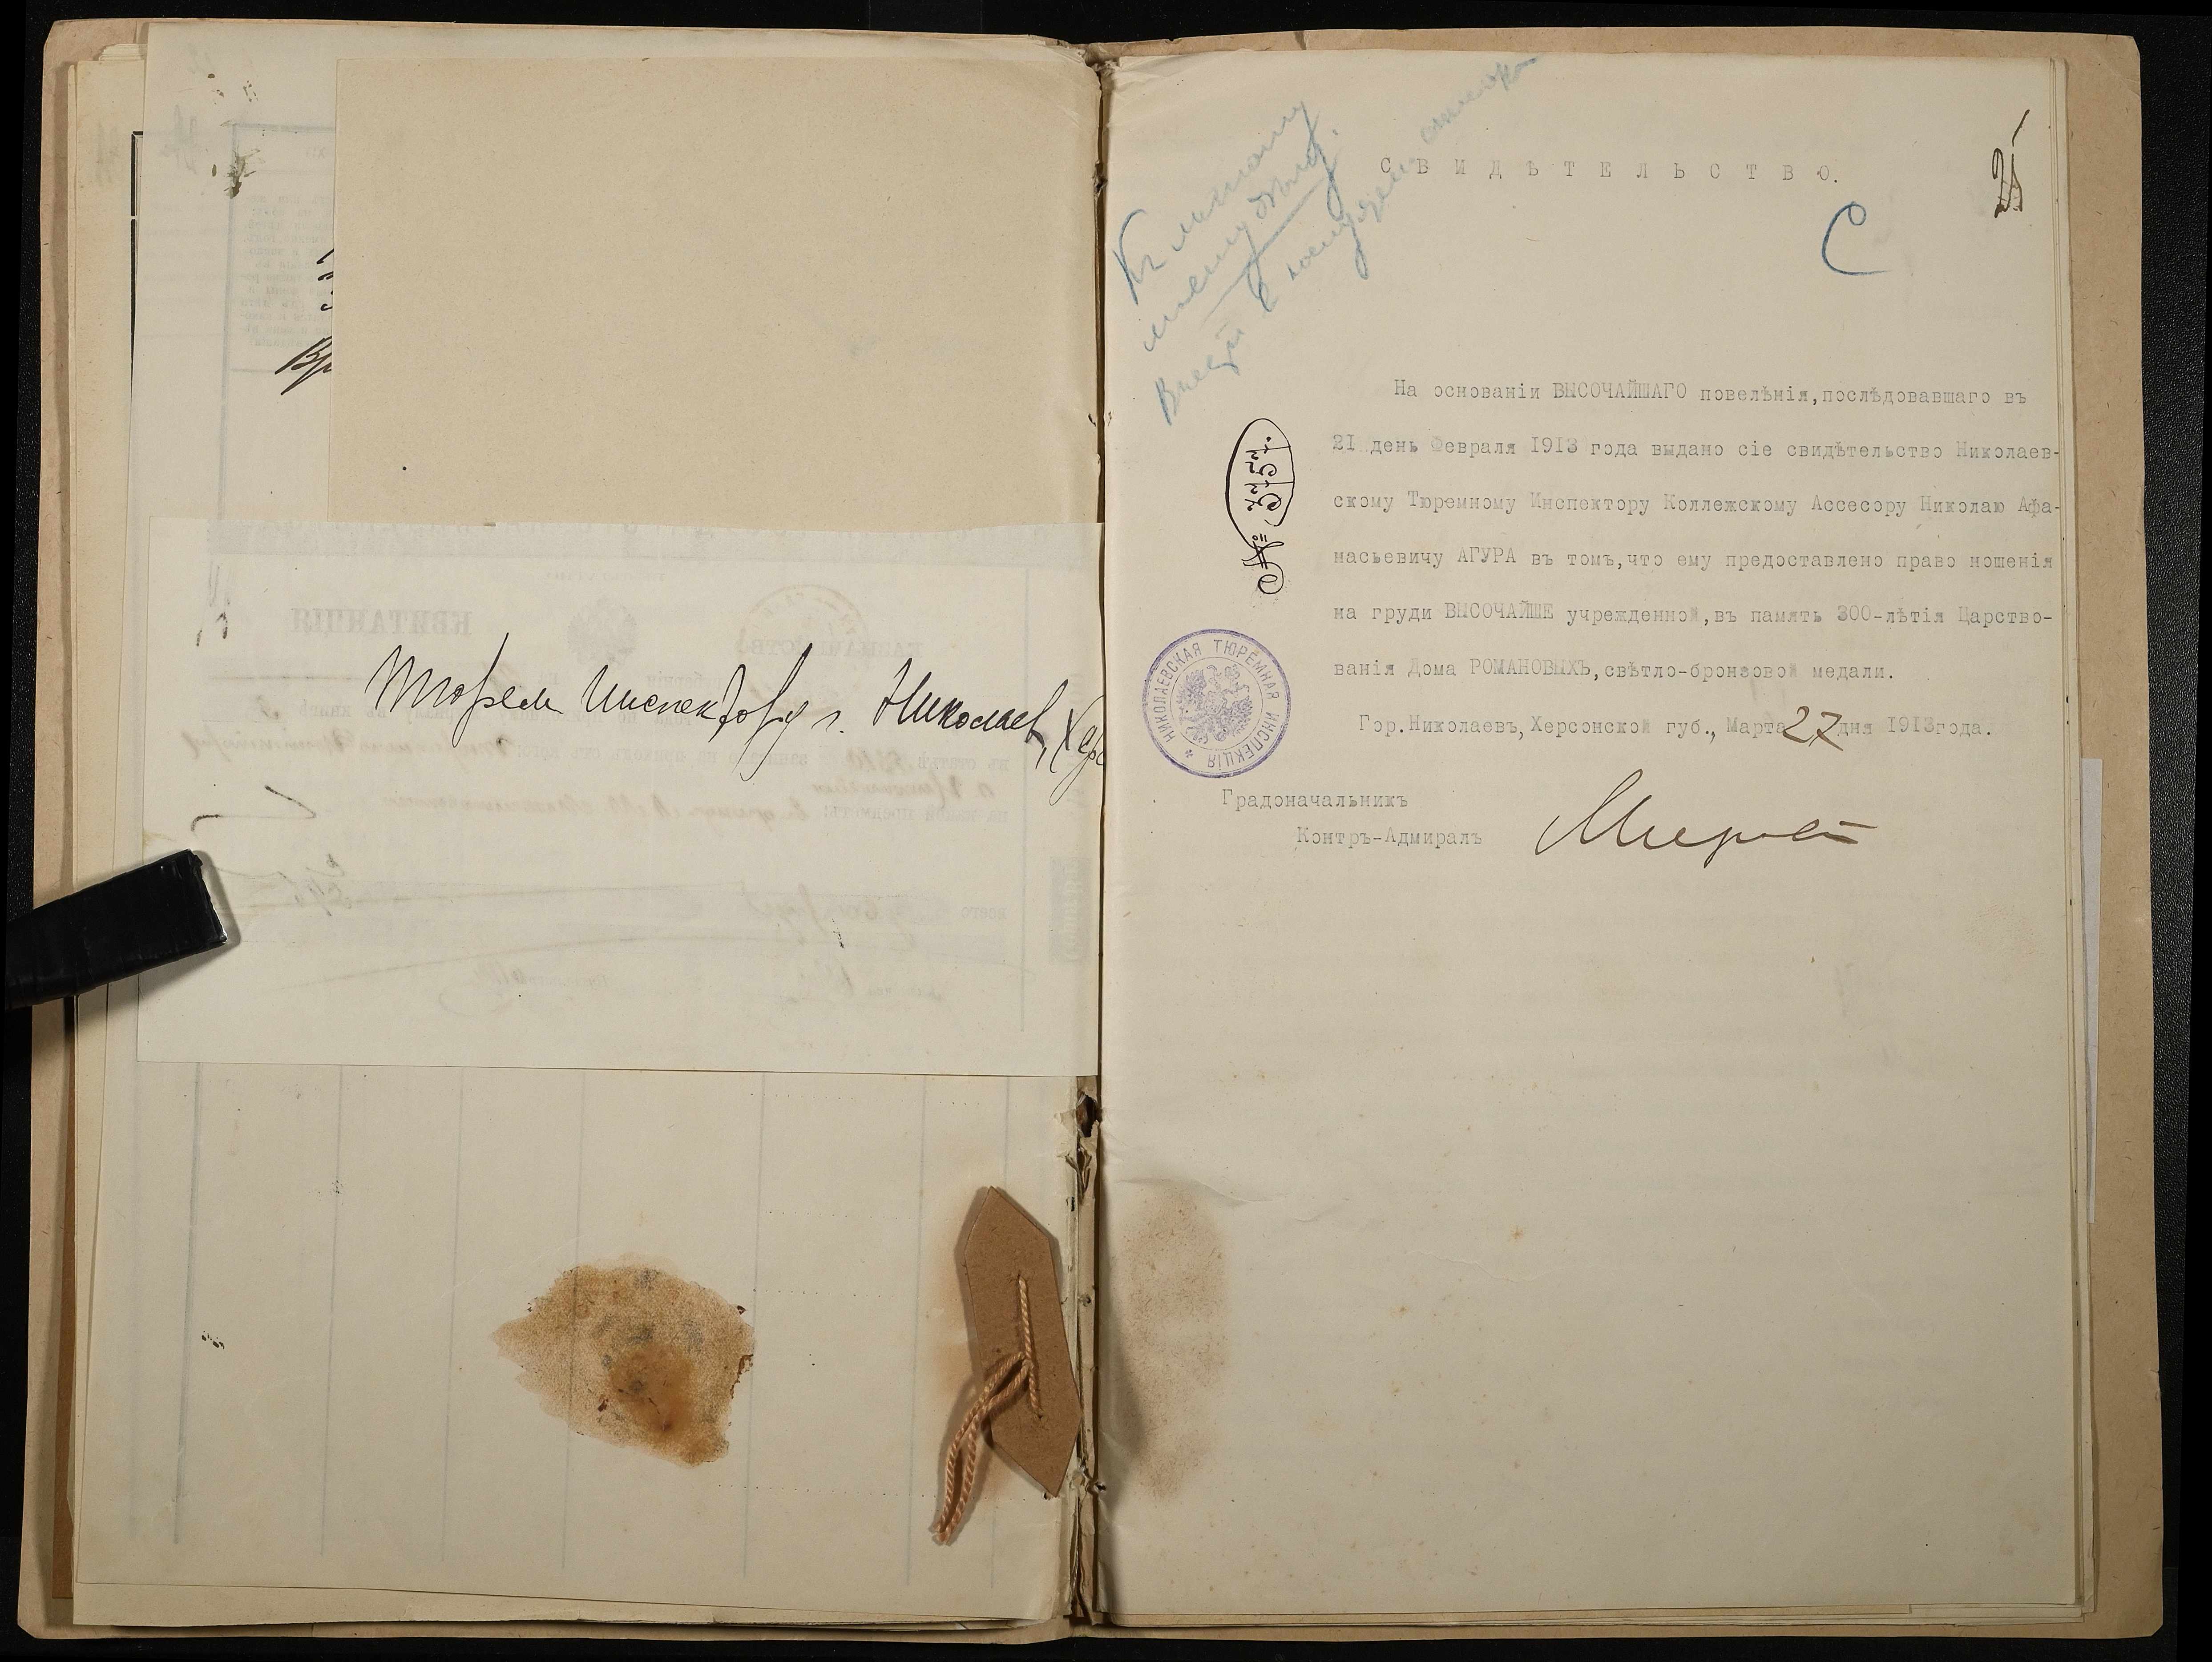 Вр
Тюрем Инспектору г. Николаев, Хер
КВИТАНЦІЯ
Къ личному
моему дѣлу.
Внести в
С В И Д Ѣ Т Е Л Ь С Т В О.
С
На основаніи ВЫСОЧАЙШАГО повелѣнія,послѣдовавшаго въ
21 день Февраля 1913 года выдано сіе свидѣтельство Николаев-
скому Тюремному Инспектору Коллежскому Ассесору Николаю Афа-
насьевичу АГУРА въ томъ,что ему предоставлено право ношенія
на груди ВЫСОЧАЙШЕ учрежденной,въ память 300-лѣтія Царство-
ванія Дома РОМАНОВЫХЪ,свѣтло-бронзовой медали.
Гор.Николаевъ,Херсонской губ., Марта 27 дня 1913года.
№ 3757.
НИКОЛАЕВСКАЯ ТЮРЕМНАЯ ИНСПЕКЦІЯ
Градоначальникъ
Контръ-Адмиралъ